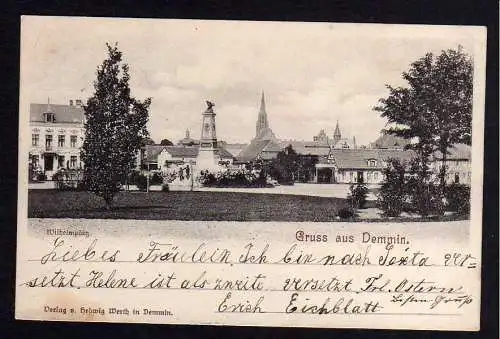 Wilhelmplatz.
Gruss aus Demmin.
Liebes Fräulein. Ich bin nach Sexta ver-
setzt. Helene ist als zweite versetzt. Frl. Ostern
Besten Gruß
Erich Eichblatt
Verlag v. Hedwig Werth in Demmin.